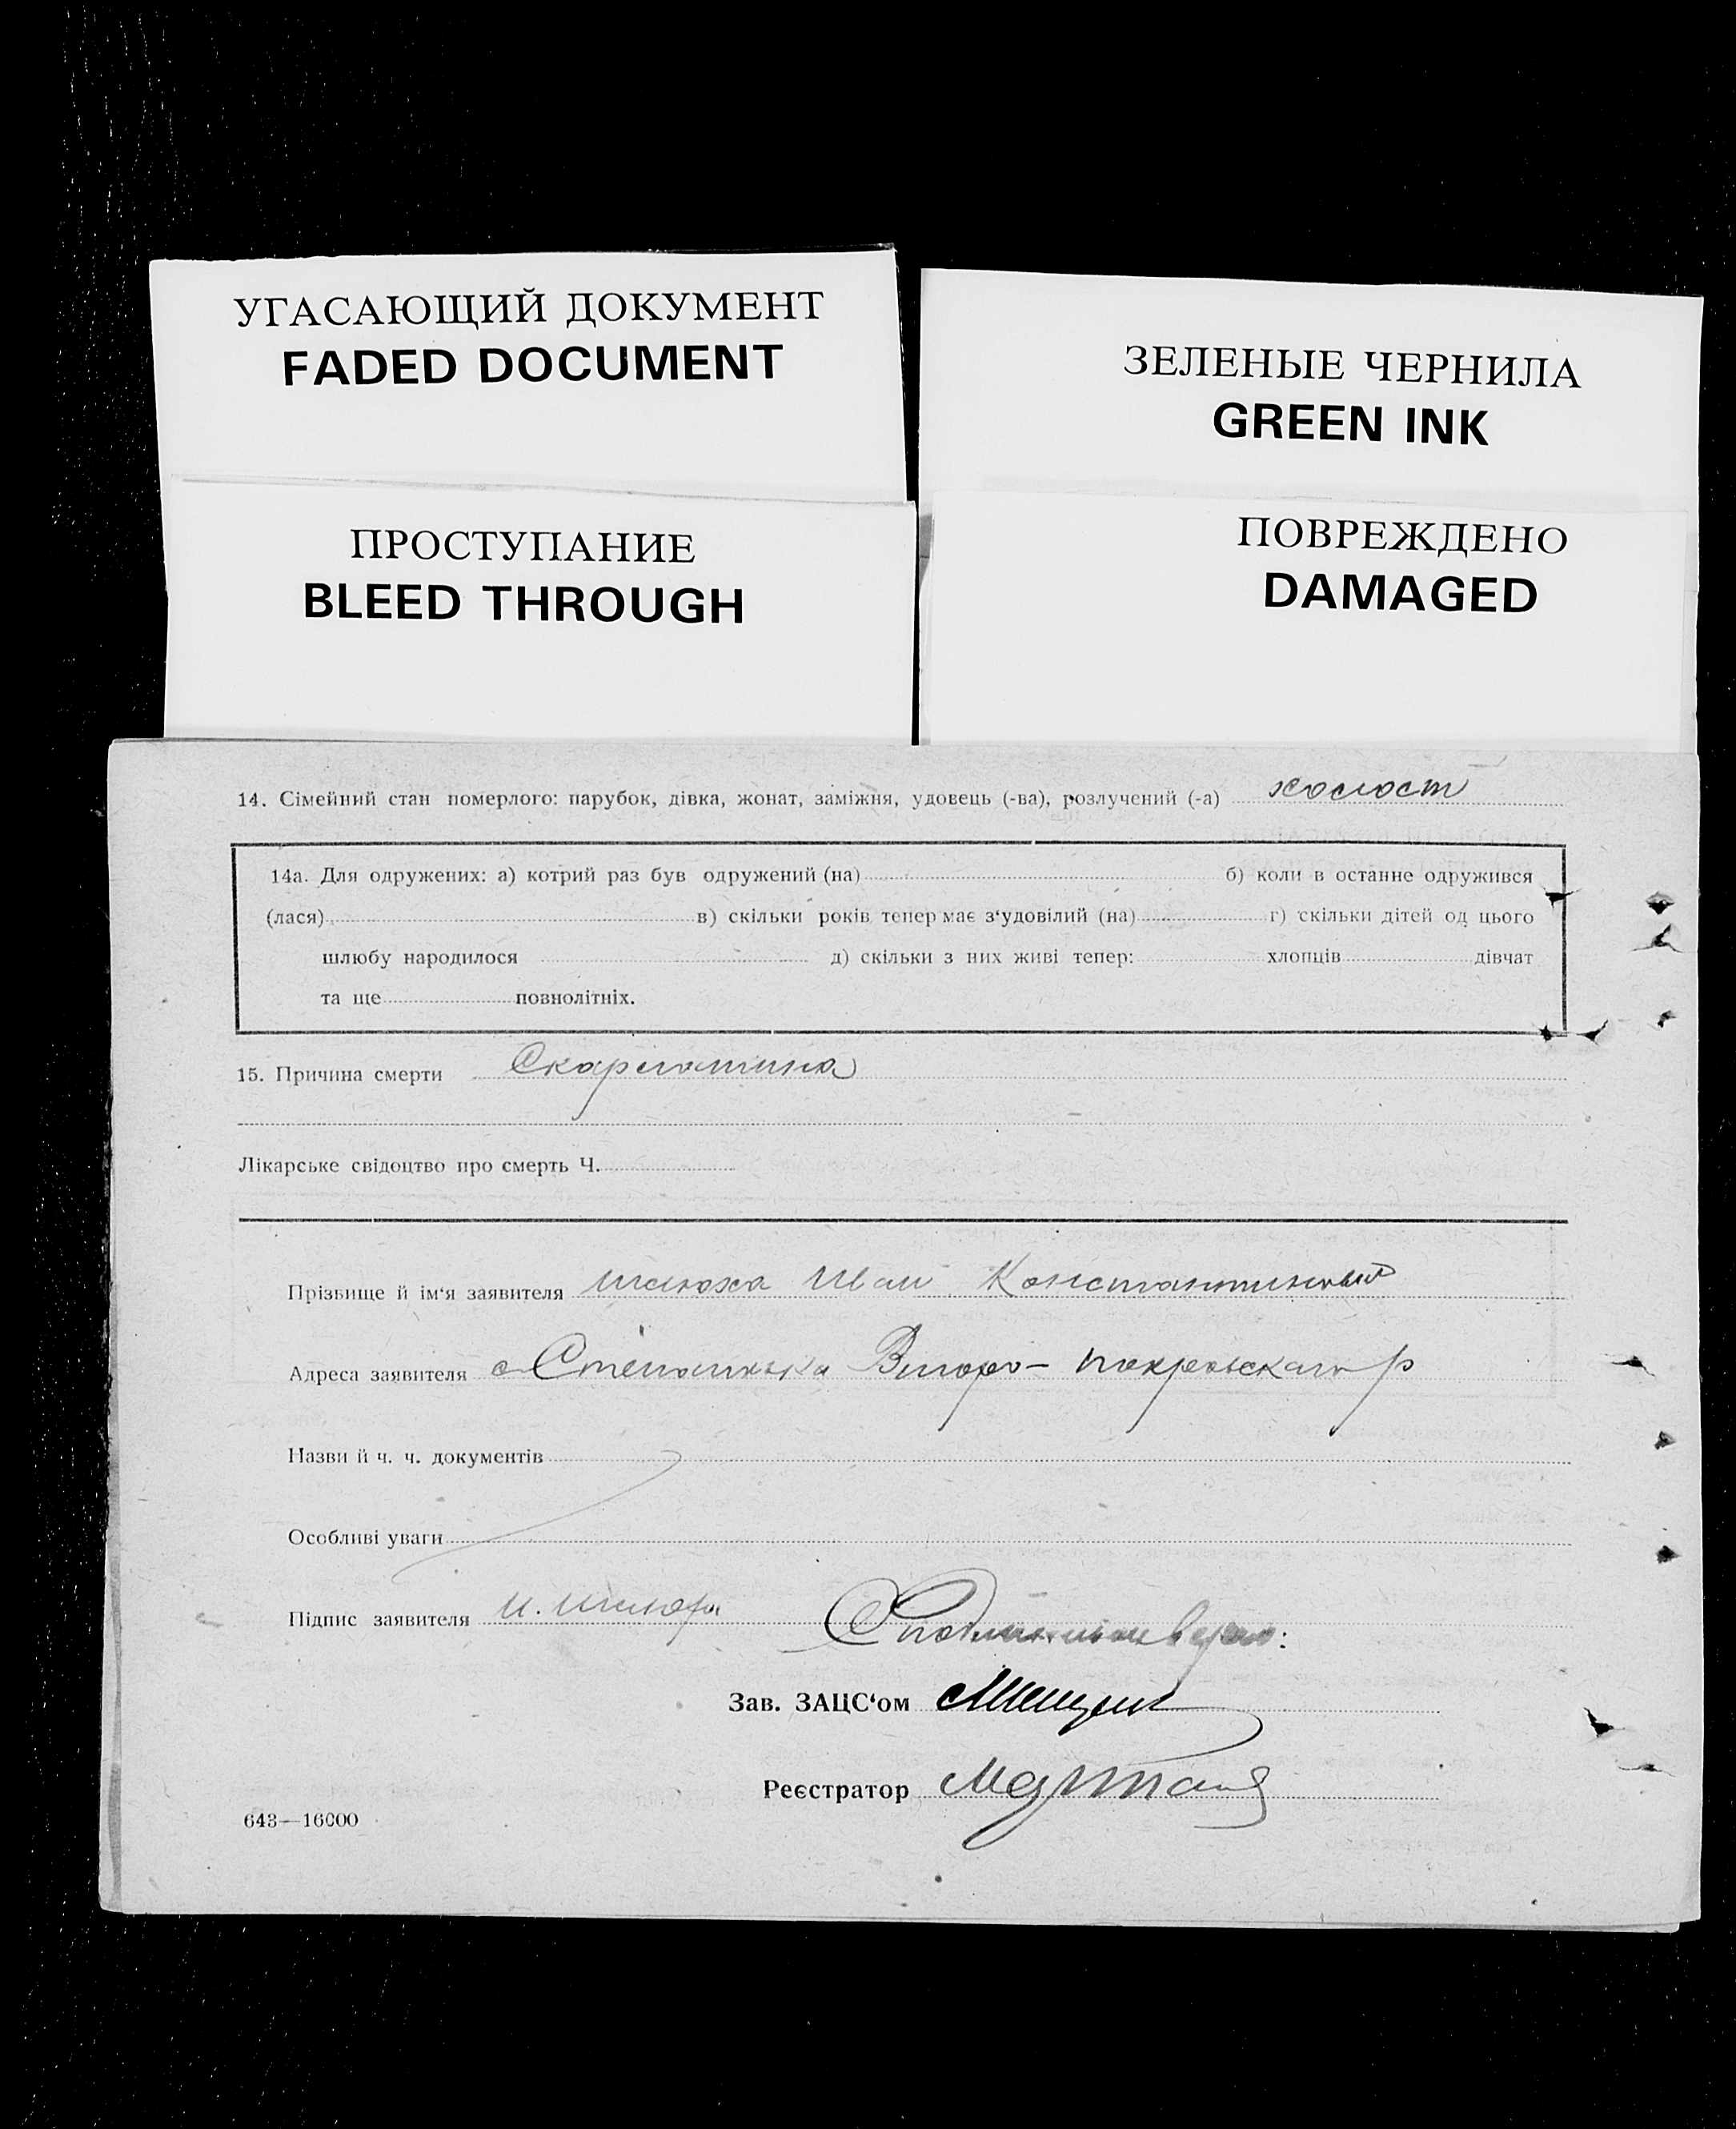 УГАСАЮЩИЙ ДОКУМЕНТ
FADED DOCUMENT
ЗЕЛЕНЫЕ ЧЕРНИЛА
GREEN INK
ПРОСТУПАНИЕ
BLEED THROUGH
ПОВРЕЖДЕНО
DAMAGED
14. Сімейний стан померлого: парубок, дівка, жонат, заміжня, удовець (-ва), розлучений (-а) холост
14а. Для одружених: а) котрий раз був одружений (на) б) коли в останнє одружився
(лася) в) скільки років тепер має з'удовілий (на) г) скільки дітей од цього
шлюбу народилося д) скільки з них живі тепер: хлопців дівчат
та ще повнолітніх.
15. Причина смерти Скарлатина
Лікарське свідоцтво про смерть Ч.
Прізвище й ім'я заявителя Шлюха Иван Константинович
Адреса заявителя с Степановка Второ-Покровскаго р
Назви й ч. ч. документів
Особливі уваги
Підпис заявителя И. Шлюха
С подлинным верно:
Зав. ЗАЦС'ом
Реєстратор
643—16000